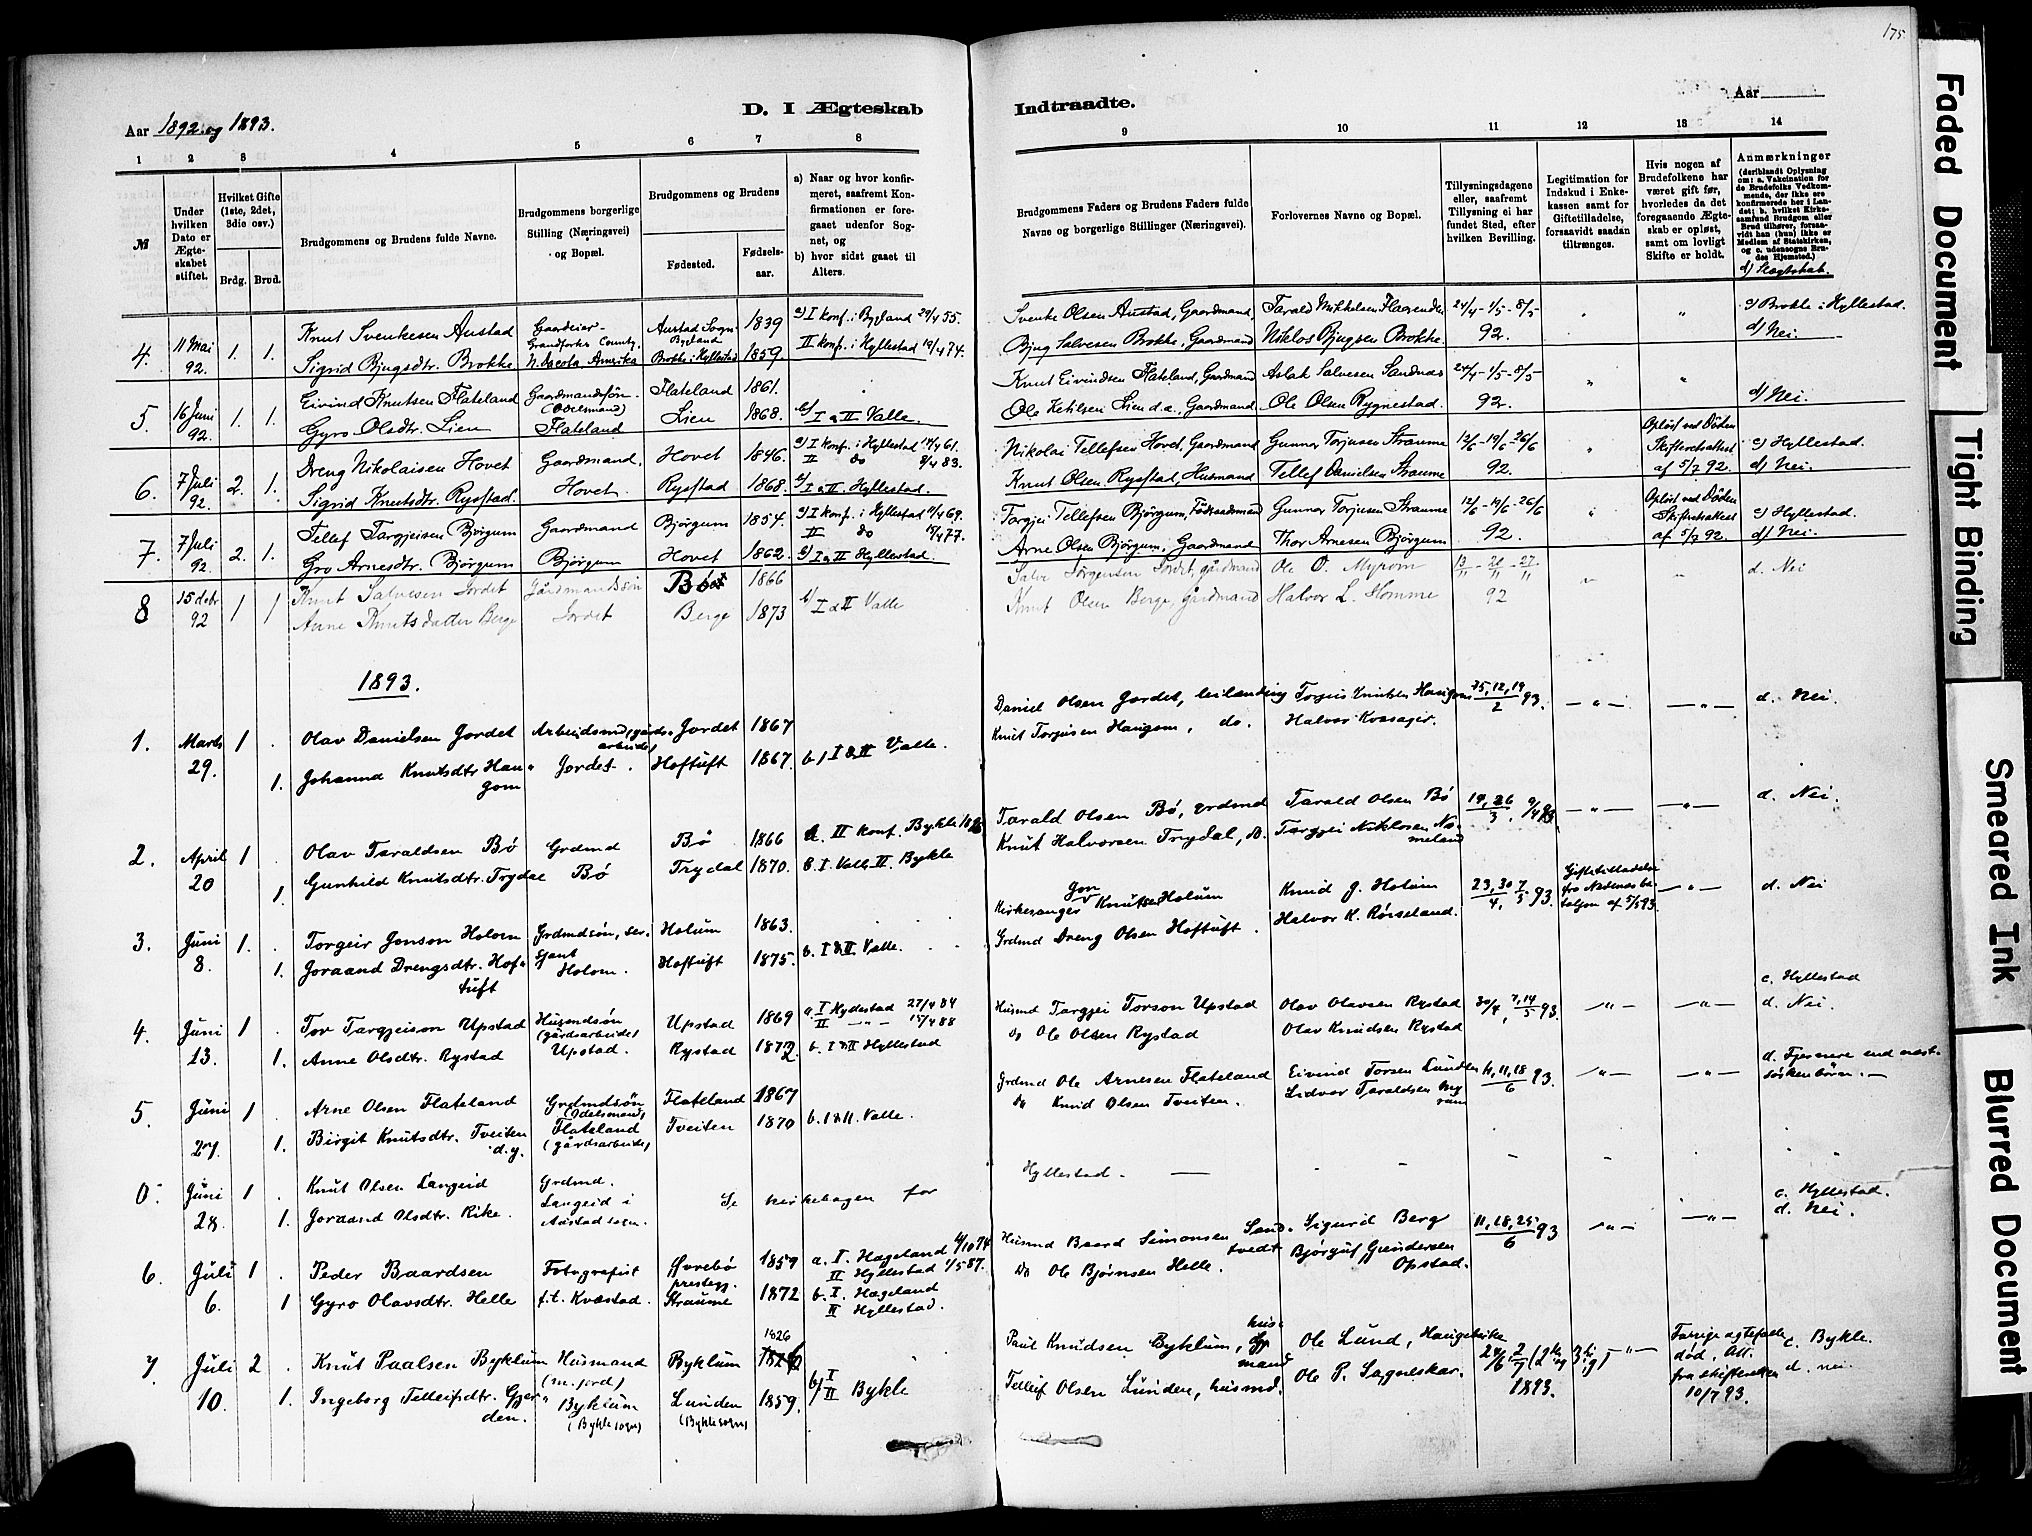 175
Aar 1892 og 1893.
D. I Ægteskab
Indtraadte.
Aar
1 2 3 4 5 6 7 8
9 10 11 12 13 14
№
Under hvilken Dato er Ægteskabet stiftet.
Hvilket Gifte (1ste, 2det, 3die osv.)
Brdg. Brud.
Brudgommens og Brudens fulde Navne.
Brudgommens borgerlige Stilling (Næringsvei) og Bopæl.
Brudgommens og Brudens
Fødested.
Fødselsaar.
a) Naar og hvor konfirmeret, saafremt Konfirmationen er foregaaet udenfor Sognet, og
b) hvor sidst gaaet til Alters.
Brudgommens Faders og Brudens Faders fulde Navne og borgerlige Stillinger (Næringsvei).
Forlovernes Navne og Bopæl.
Tillysningsdagene eller, saafremt Tillysning ei har fundet Sted, efter hvilken Bevilling.
Legitimation for Indskud i Enkekassen samt for Giftetilladelse, forsaavidt saadan tiltrænges.
Hvis nogen af Brudefolkene har været gift før, hvorledes da det foregaaende Ægteskab er opløst, samt om lovligt Skifte er holdt.
Anmærkninger (deriblandt Oplysning om: a. Vakcination for de Brudefolks Vedkommende, der ikke ere konfirmerede her i Landet; b. hvilket Kirkesamfund Brudgom eller Brud tilhører, forsaavidt han (hun) ikke er Medlem af Statskirken, og c. udensogns Brudes Hjemsted.)
d) Slægtskab.
4. 11 Mai 92. 1. 1.
Knut Svenkesen Austad Gaardeier- Austad Sogn Bygland 1839 a) I konf. i Bygland 29/4 55.
Sigrid Bjugsdtr. Brokke Grandforks County, N. Dacota, Amerika Brokke i Hyllestad 1859 II konf. i Hyllestad 19/4 74.
Svenke Olsen Austad, Gaardmand Tarald Mikkelsen 24/4 - 1/5 - 8/5 " " c) Brokke i Hyllestad.
Bjug Salvesen Brokke, Gaardmand Niklos Bjugsen Brokke. 92. d) Nei.
5. 16 Juni 92. 1. 1.
Eivind Knutsen Flateland Gaardmandssøn. (Odelsmand) Flateland 1861.
Gyro Olsdtr. Lien Flateland Lien 1868. b) I & II Valle.
Knut Eivindsen Flateland, Gaardmand Aslak Salvesen Sandnes 24/4 - 1/5 - 8/5 " "
Ole Ketilsen Lien d.æ., Gaardmand Ole Olsen Rygnestad. 92. d) Nei.
6. 7 Juli 92. 2. 1.
Dreng Nikolaisen Hovet Gaardmand. Hovet 1846. a) I konf. i Hyllestad 14/4 61. II do 8/4 83.
Sigrid Knutsdtr. Rystad. Hovet. Rystad 1868. b) I & II Hyllestad.
Nikolai Tellefsen Hovet, Gaardmand Gunnar Torjusen Straume 12/6 - 19/6 - 26/6 Opløst ved Døden Skifteretsattest af 5/7 92. c) Hyllestad
Knut Olsen Rystad, Husmand Tellef Danielsen Straume 92. d) Nei.
7. 7 Juli 92. 2. 1.
Tellef Targjeisen Bjørgum Gaardmand Bjørgum 1854. a) I konf. i Hyllestad 11/4 69. II do 15/4 77.
Gro Arnesdtr. Bjørgum Bjørgum Hovet 1862. b) I & II Hyllestad.
Targjei Tellefsen Bjørgum, Føderaadsmand Gunnar Torjusen Straume 12/6 - 19/6 - 26/6 Opløst ved Døden Skifteretsattest af 5/7 92. c) Hyllestad.
Arne Olsen Bjørgum, Gaardmand Thor Arnesen Bjørgum 92. d) Nei.
8 15 debr 92 1 1
Knut Salvesen Jordet Gårdmandssøn 1866
Anne Knutsdatter Berge Jordet Berge 1873 b) I & II Valle
Salve Jørgensen Jordet, gårdmand Ole O. Myrom 13/11 - 20/11 - 27/11 " " d. Nei
Knut Olsen Berge, gårdmand Halvor L. Homme 92
1893.
1. Marts 29. 1 .
Olav Danielsen Jordet Arbeidsmd, (gårdsarbeide) Jordet 1867
1. Johanna Knutsdtr. Haugom Jordet. Hoftuft 1867. b) I & II Valle.
Daniel Olsen Jordet, leilænding Torjus Knutsen Haugom 5, 12, 19/2 93. — " — — " — d. Nei.
Knut Torjusen Haugom, do. Halvor
2. April 20 1 .
Olav Taraldsen Bø Grdmd Bø 1866 a. II konf. Bykle
1. Gunhild Knutsdtr. Trydal Bø Trydal 1870. b. I Valle II. Bykle
Tarald Olsen Bø, grdmd Tarald Olsen Bø 19, 26/3, 9/4 93. — " — — " — d. Nei.
Knut Halvorsen Trydal, do. Targjei Niklosen Nomeland
3. Juni 8. 1. .
Torgeir Jonson Holom Grdmdsøn, sersjant Holum 1863.
1. Joraand Drengsdtr. Hoftuft Holom. Hoftuft 1875. b. I & II Valle.
Kirkesanger Jon Knutsen Holum Knud J. Holum 23, 30/4, 7/5 93. Giftetilladelse fra Nedenes bataljon af 5/5 93. — " — d. Nei
Grdmd Dreng Olsen Hoftuft. Halvor K. Rørseland.
4. Juni 13. 1 .
Tor Targjeison Upstad Husmdsøn (gårdsarbeide) Upstad 1869 a. I Hyllestad 27/4 84 II — " — 15/4 88
1. Anne Olsdtr. Rystad Upstad. Rystad 1872. b. I & II Hyllestad
Husmd Targjei Torson Upstad Olav Olavsen Rystad 30/4, 7, 14/5 93. — " — — " — c. Hyllestad
do Ole Olsen Rystad Olav Knudsen Rystad d. Nei.
5. Juni 27. 1 .
Arne Olsen Flateland Grdmdsøn (Odelsmand) Flateland 1867
1. Birgit Knutsdtr. Tveiten d.y. Flateland (gårdsarbeide) Tveiten 1870 b. I & II. Valle.
Grdmd Ole Arnesen Flateland Eivind Torsen Lunden 4, 11, 18/6 93. — " — — " — d. Fjernere end næstsøskenbørn. —
do Knud Olsen Tveiten. Lidvor Taraldsen Myrum
0. Juni 28. 1 .
Knut Olsen Langeid Grdmd. Se kirkebogen for Hyllestad. —
1. Joraand Olsdtr. Rike. Langeid i Austad sogn.
6. Juli 6. 1 .
Peder Baardsen Fotografist Øvrebø prestegj. 1859 a. I. Hægeland 4/10 74 II Hyllestad 1/5 87.
1 Gyro Olavsdtr. Helle f.t. Kvæstad. Straume 1872 b. I. Hægeland II Hyllestad.
Husmd Baard Simonsen Sandtvedt Sigurd Berg 11, 18, 25/6 93 — " — — " — c. Hyllestad.
Do Ole Bjørnsen Helle. Bjørguf Gundersen Opstad. d. Nei.
7 Juli 10. 2 .
Knut Paalsen Byklum Husmand (m. jord) Byklum 1826
1. Ingeborg Tellefsdtr. Gjerden. Byklum (Bykle sogn) Lunden (Bykle sogn) 1859. b) I II Bykle
Paul Knudsen Byklum, husmand Ole Lund, 1893. — " — Forrige ægtefælle død, Att. fra skifteretten 10/7 93. c. Bykle.
Tellef Olsen Lunden, husmd. Ole P. d. nei.
Faded Document
Tight Binding
Smeared Ink
Blurred Document